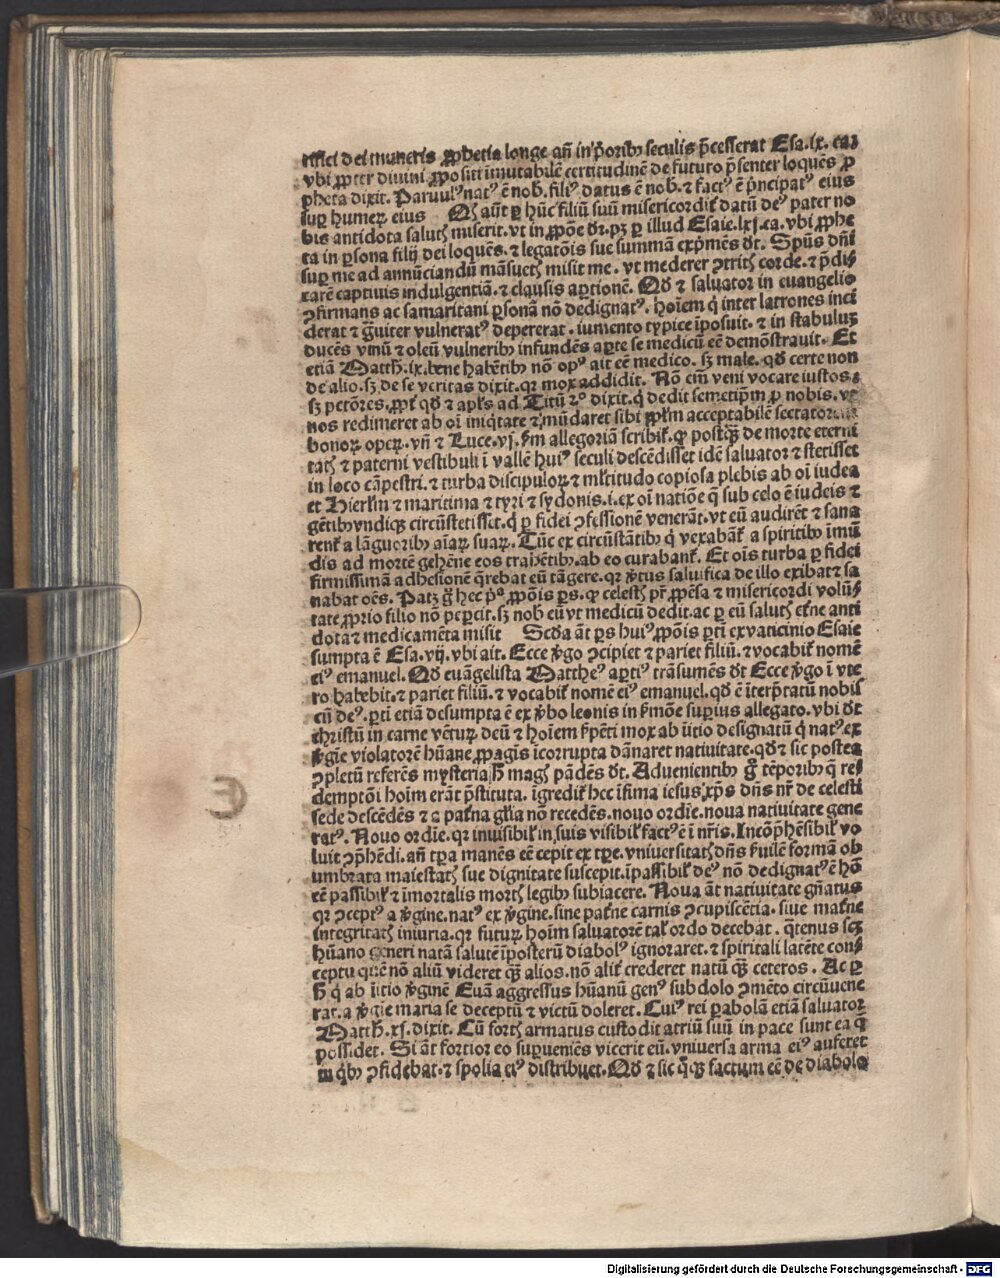 rifici dei muneris ꝓphetia longe añ in p̃orib⁹ seculis p̃cesserat Esa.ix. ca⁊
vbi ꝓpter diuini ꝓpositi īmutabilē certitudinē de futuro p̃senter loquēs ꝓ
pheta dixit. Paruul⁹ nat⁹ ē nob̄. fili⁹ datus ē nob̄. ⁊ fact⁹ ē p̃ncipat⁹ eius
suꝑ humeꝝ eius Qꝫ aūt ꝑ hūc filiū suū misericordit̃ datū de⁹ pater no
bis antidota salut̃ miserit. vt in ꝓpōe dr̄. pꝫ ꝑ illud Esaie.lxj.ca. vbi ꝓphe
ta in ꝑsona filij dei loquēs. ⁊ legatōis sue summā exp̃mēs dt̄. Spūs dn̄i
suꝑ me ad annūciandū māsuet̃ misit me. vt mederer ꝯtrit̃ corde. ⁊ p̃di
carē captiuis indulgentiā. ⁊ clausis aꝑtionē. Qđ ⁊ saluator in euangelio
ꝯfirmans ac samaritani ꝑsonā nō dedignat⁹. hoīem q̇ inter latrones inci
derat ⁊ g̃uiter vulnerat⁹ deperierat. iumento typice īposuit. ⁊ in stabuluꝫ
ducēs vinū ⁊ oleū vulneribꝰ infundēs aꝑte se medicū eē demōstrauit. Et
etiā Matth̄.ix. bene habētibꝰ nō op⁹ ait eē medico. sꝫ male. qđ certe non
de alio. sꝫ de se veritas dixit. qꝛ mox addidit. Nō em̄ veni vocare iustos.
sꝫ pctōres. ꝓpt̃ qđ ⁊ apl̄s ad Titū 2⁰ dixit. q̇ dedit semetip̄m ꝓ nobis. vt
nos redimeret ab oī iniq̇tate ⁊ mūdaret sibi ꝓp̄lm acceptabilē sectatorem
bonoꝝ opeꝝ. vn̄ ⁊ Luce.vj. s̄m allegoriā scribit̃. ꝙ postq̃ꝫ de morte eterni
tat̃ ⁊ paterni vestibuli ī vallē hui⁹ seculi descēdisset idē saluator ⁊ stetisset
in loco cāpestri. ⁊ turba discipuloꝝ ⁊ ml̄titudo copiosa plebis ab oī iudea
et Hierl̄m ⁊ maritima ⁊ tyri ⁊ sydonis. i. ex oī natiōe q̄ sub celo ē iudeis ⁊
gētibꝰ vndiqꝫ circūstetisset. q̇ ꝑ fidei ꝯfessionē venerāt. vt eū audirēt ⁊ sana
rent̃ a lāguoribꝰ aīaꝝ suaꝝ. Tūc ex circūstātibꝰ q̇ vexabāt̃ a spiritibꝰ īmū
dis ad mortē gehēne eos trahētibꝰ. ab eo curabant̃. Et oīs turba ꝑ fidei
firmissimā adhesionē q̄rebat eū tāgere. qꝛ ꝟtus saluifica de illo exibat ⁊ sa
nabat oēs. Patꝫ g̊ hec p̃ª ꝓpōis ꝑs. ꝙ celest̃ pr̄ ꝓpēsa ⁊ misericordi volū
tate ꝓprio filio nō peꝑcit. sꝫ nob̄ eū vt medicū dedit. ac ꝑ eū salut̃ et̃ne anti
dota ⁊ medicamēta misit Scđa āt ꝑs hui⁹ ꝓpōis ꝑti ex vaticinio Esaie
sumpta ē Esa. vij. vbi ait. Ecce ꝟgo ꝯcipiet ⁊ pariet filiū. ⁊ vocabit̃ nomē
ei⁹ emanuel. Qđ euāgelista Matthe⁹ aꝑti⁹ trāsumēs dt̄ Ecce ꝟgo ī vte
ro habebit. ⁊ pariet filiū. ⁊ vocabit̃ nomē ei⁹ emanuel. qđ ē īterp̃tatū nobis
cū de⁹. ꝑti etiā desumpta ē ex ꝟbo leonis in ẜmōe suꝑius allegato. vbi dt̄
christū in carne vētuꝝ deū ⁊ hoīem ẜpēti mox ab ītio designatū q̇ nat⁹ ex
ꝟgīe violatorē hūane ꝓpagīs īcorrupta dānaret natiuitate. qđ ⁊ sic postea
ꝯpletū referēs mysteria h̄ mag̃ pādēs dt̄. Aduenientibꝰ g̊ tēporibꝰ q̄ re
demptōi hoīm erāt p̃stituta. īgredit̃ hec īfima iesus xp̄s dn̄s nr̄ de celesti
sede descēdēs ⁊ a pat̃na gl̄ia nō recedēs. nouo ordīe. noua natiuitate gene
rat⁹. Nouo ordīe. qꝛ inuisibil̃ in suis visibil̃ fact⁹ ē ī nr̄is. Incōp̃hēsibil̃ vo
luit ꝯp̃hēdi. añ tꝑa manēs eē cepit ex tꝑe. vniuersitat̃ dn̄s ẜuilē formā ob
umbrata maiestat̃ sue dignitate suscepit. īpassibil̃ de⁹ nō dedignat⁹ ē hō
eē passibil̃ ⁊ īmortalis mort̃ legibꝰ subiacere. Noua āt natiuitate gn̄atus
qꝛ ꝯcept⁹ a ꝟgine. nat⁹ ex ꝟgine. sine pat̃ne carnis ꝯcupiscētia. siue mat̃ne
integritat̃ iniuria. qꝛ futuꝝ hoīm saluatorē tal̃ ordo decebat. q̄tenus scꝫ
hūano generi natā salutē īposterū diabol⁹ ignoraret. ⁊ spiritali latēte con
ceptu quē nō aliū videret q̃ꝫ alios. nō alit̃ crederet natū q̃ꝫ ceteros. Ac ꝑ
h̄ q̇ ab ītio ꝟginē Euā aggressus hūanū gen⁹ sub dolo ꝯmēto circūuene
rat. a ꝟgīe maria se deceptū ⁊ victū doleret. Cui⁹ rei ꝑabolā etiā saluator
Matth̄. xj. dixit. Cū fort̃ armatus custodit atriū suū in pace sunt ea q̄
possidet. Si āt fortior eo suꝑueniēs vicerit eū. vniuersa arma ei⁹ auferet
in q̇bꝰ ꝯfidebat. ⁊ spolia ei⁹ distribuet. Qđ ⁊ sic q̇qꝫ factum eē de diabolo
Digitalisierung gefördert durch die Deutsche Forschungsgemeinschaft - DFG